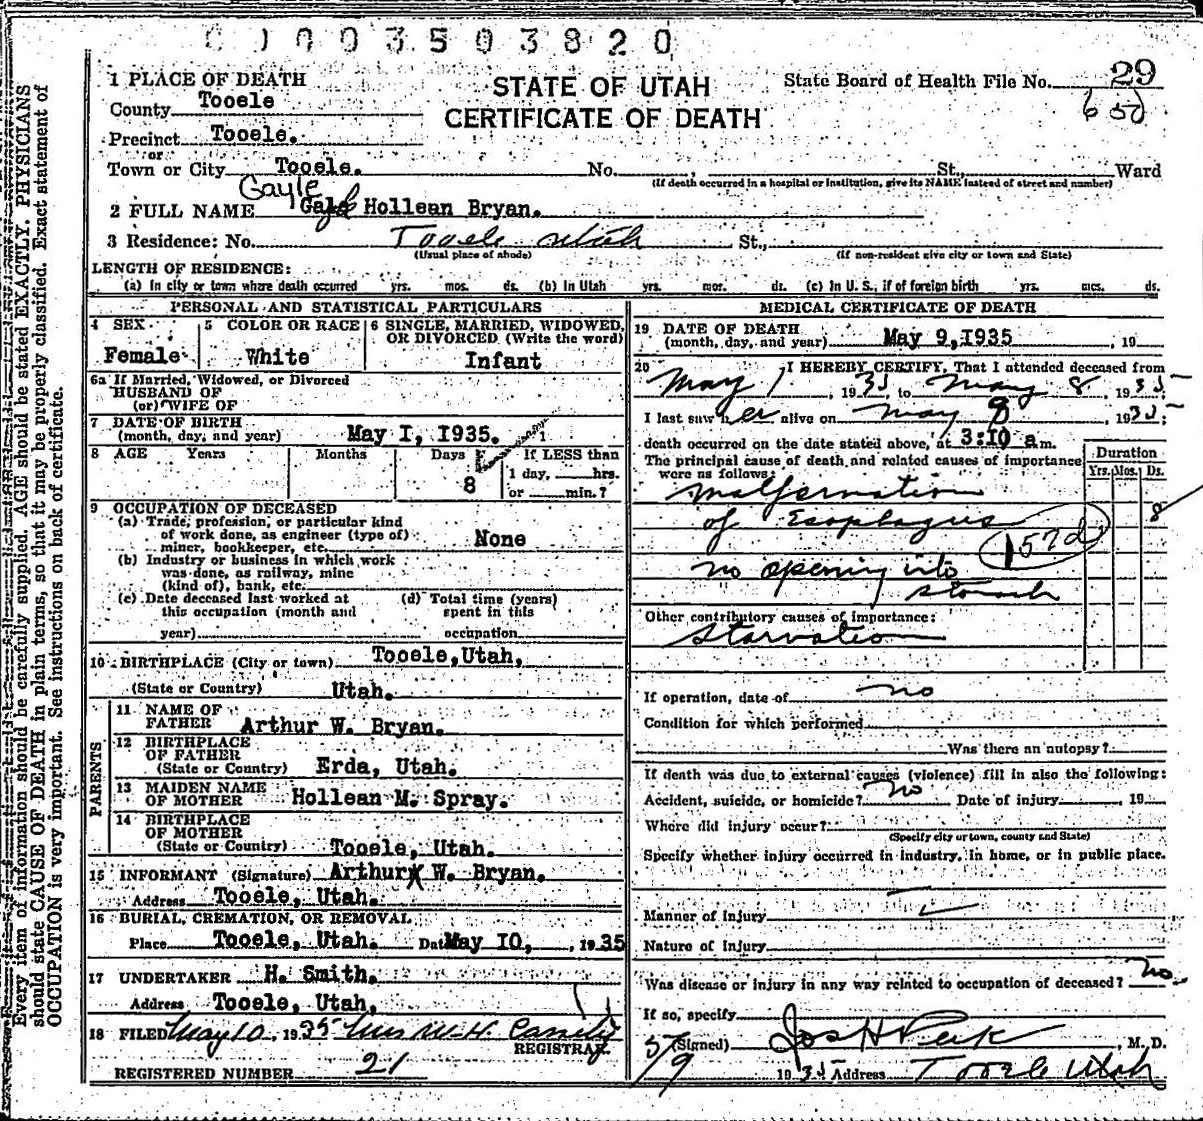 0 1 0 0 3 5 0 3 8 2 0
1 PLACE OF DEATH
County Tooele
Precinct Tooele.
or
Town or City Tooele.
STATE OF UTAH
CERTIFICATE OF DEATH
State Board of Health File No. 29
No. , St., Ward
(If death occurred in a hospital or institution, give its NAME instead of street and number)
Gayle
2 FULL NAME Hollean Bryan.
3 Residence: No. Tooele Utah St.,
(Usual place of abode) (If non-resident give city or town and State)
LENGTH OF RESIDENCE:
(a) In city or town where death occurred yrs. mos. ds. (b) In Utah yrs. mos. ds. (c) In U. S., if of foreign birth yrs. mos. ds.
PERSONAL AND STATISTICAL PARTICULARS
4 SEX Female
5 COLOR OR RACE White
6 SINGLE, MARRIED, WIDOWED, OR DIVORCED (Write the word) Infant
6a If Married, Widowed, or Divorced
HUSBAND OF
(or) WIFE OF
7 DATE OF BIRTH
(month, day, and year) May I, I935.
8 AGE Years Months Days 8 If LESS than
1 day, hrs.
or min.?
9 OCCUPATION OF DECEASED
(a) Trade, profession, or particular kind
of work done, as engineer (type of)
miner, bookkeeper, etc. None
(b) Industry or business in which work
was done, as railway, mine
(kind of), bank, etc.
(c) Date deceased last worked at
this occupation (month and
year)
(d) Total time (years)
spent in this
occupation
10 BIRTHPLACE (City or town) Tooele, Utah,
(State or Country) Utah.
PARENTS
11 NAME OF
FATHER Arthur W. Bryan.
12 BIRTHPLACE
OF FATHER
(State or Country) Erda, Utah.
13 MAIDEN NAME
OF MOTHER Hollean M. Spray.
14 BIRTHPLACE
OF MOTHER
(State or Country) Tooele, Utah.
15 INFORMANT (Signature) Arthur W. Bryan.
Address Tooele, Utah.
16 BURIAL, CREMATION, OR REMOVAL
Place Tooele, Utah. Date May IO, , 1935
17 UNDERTAKER H. Smith.
Address Tooele, Utah,
18 FILED May 10, 1935 Mrs W. H. Cassity
REGISTRAR
REGISTERED NUMBER 21
MEDICAL CERTIFICATE OF DEATH
19 DATE OF DEATH
(month, day, and year) May 9, I935 , 19
20 I HEREBY CERTIFY, That I attended deceased from
May 1, 1935, to May 8, 1935
I last saw her alive on May 8, 1935;
death occurred on the date stated above, at 3:10 am.
The principal cause of death and related causes of importance
were as follows:
Duration
Yrs. Mos. Ds.
Malformation 8
of Esophagus
157d
no opening into
stomach
Other contributory causes of importance:
Starvation
If operation, date of no
Condition for which performed
Was there an autopsy?
If death was due to external causes (violence) fill in also the following:
Accident, suicide, or homicide? no Date of injury , 19
Where did injury occur?
(Specify city or town, county and State)
Specify whether injury occurred in industry, in home, or in public place.
Manner of injury
Nature of injury
Was disease or injury in any way related to occupation of deceased? no
If so, specify
(Signed) Jos H Peck , M. D.
5/9 1935 Address Tooele Utah
Every item of information should be carefully supplied. AGE should be stated EXACTLY. PHYSICIANS
should state CAUSE OF DEATH in plain terms, so that it may be properly classified. Exact statement of
OCCUPATION is very important. See instructions on back of certificate.